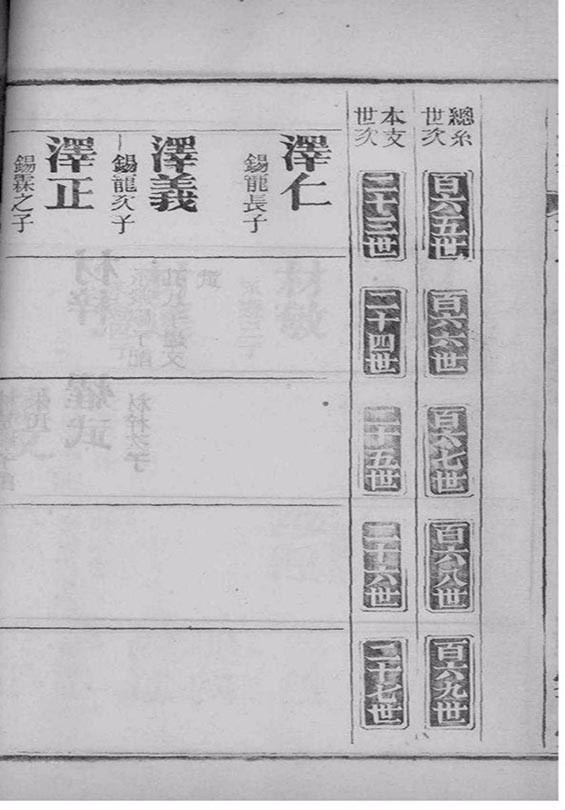 總系世次
百六五世
百六六世
百六七世
百六八世
百六九世
本支世次
二十三世
二十四世
二十五世
二十六世
二十七世
澤仁
錫龍長子
澤義
錫龍次子
澤正
錫霖之子